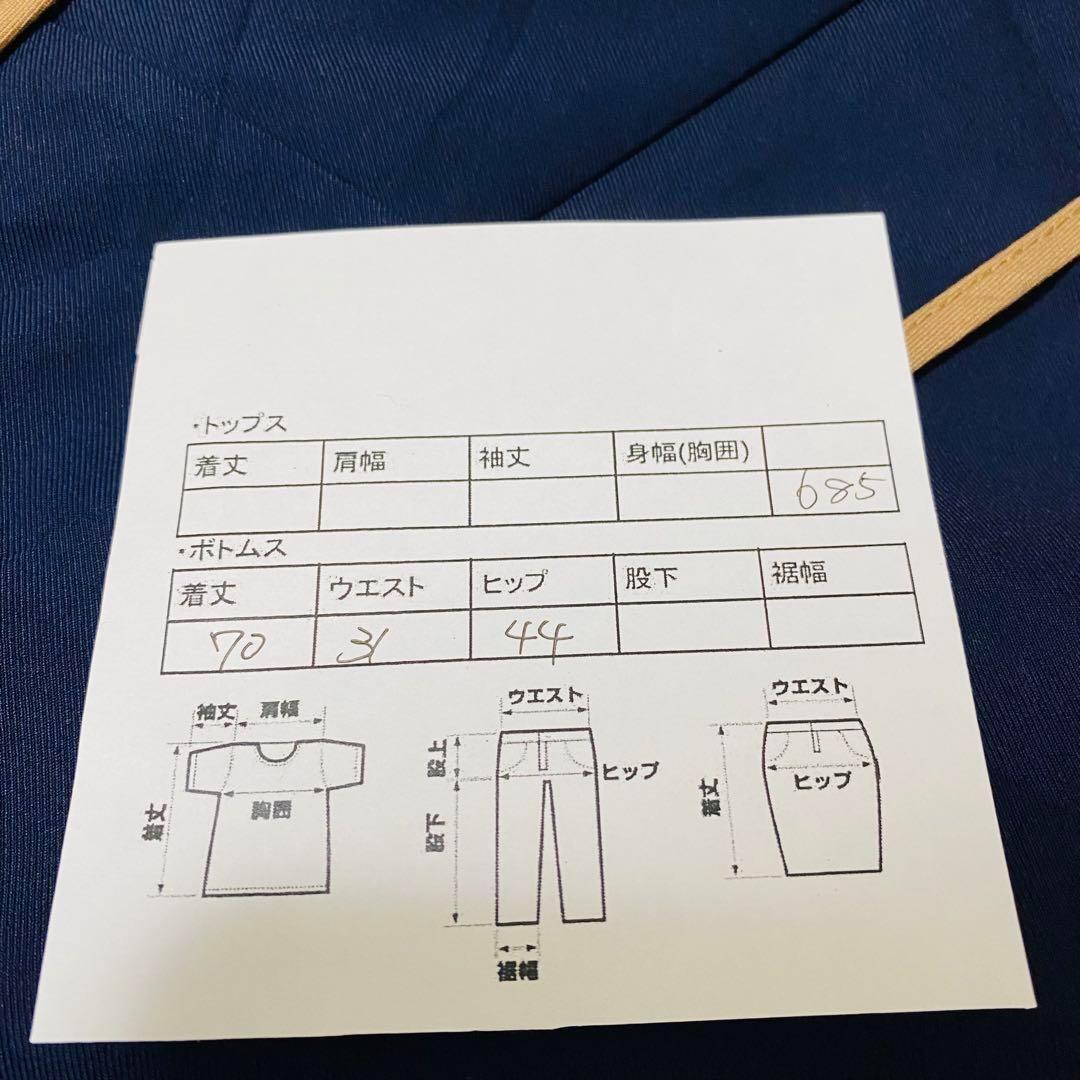 ・トップス
着丈 肩幅 袖丈 身幅(胸囲)
685
・ボトムス
着丈 ウエスト ヒップ 股下 裾幅
70 31 44
袖丈 肩幅
胸囲
着丈
ウエスト
股上
ヒップ
股下
裾幅
ウエスト
ヒップ
着丈